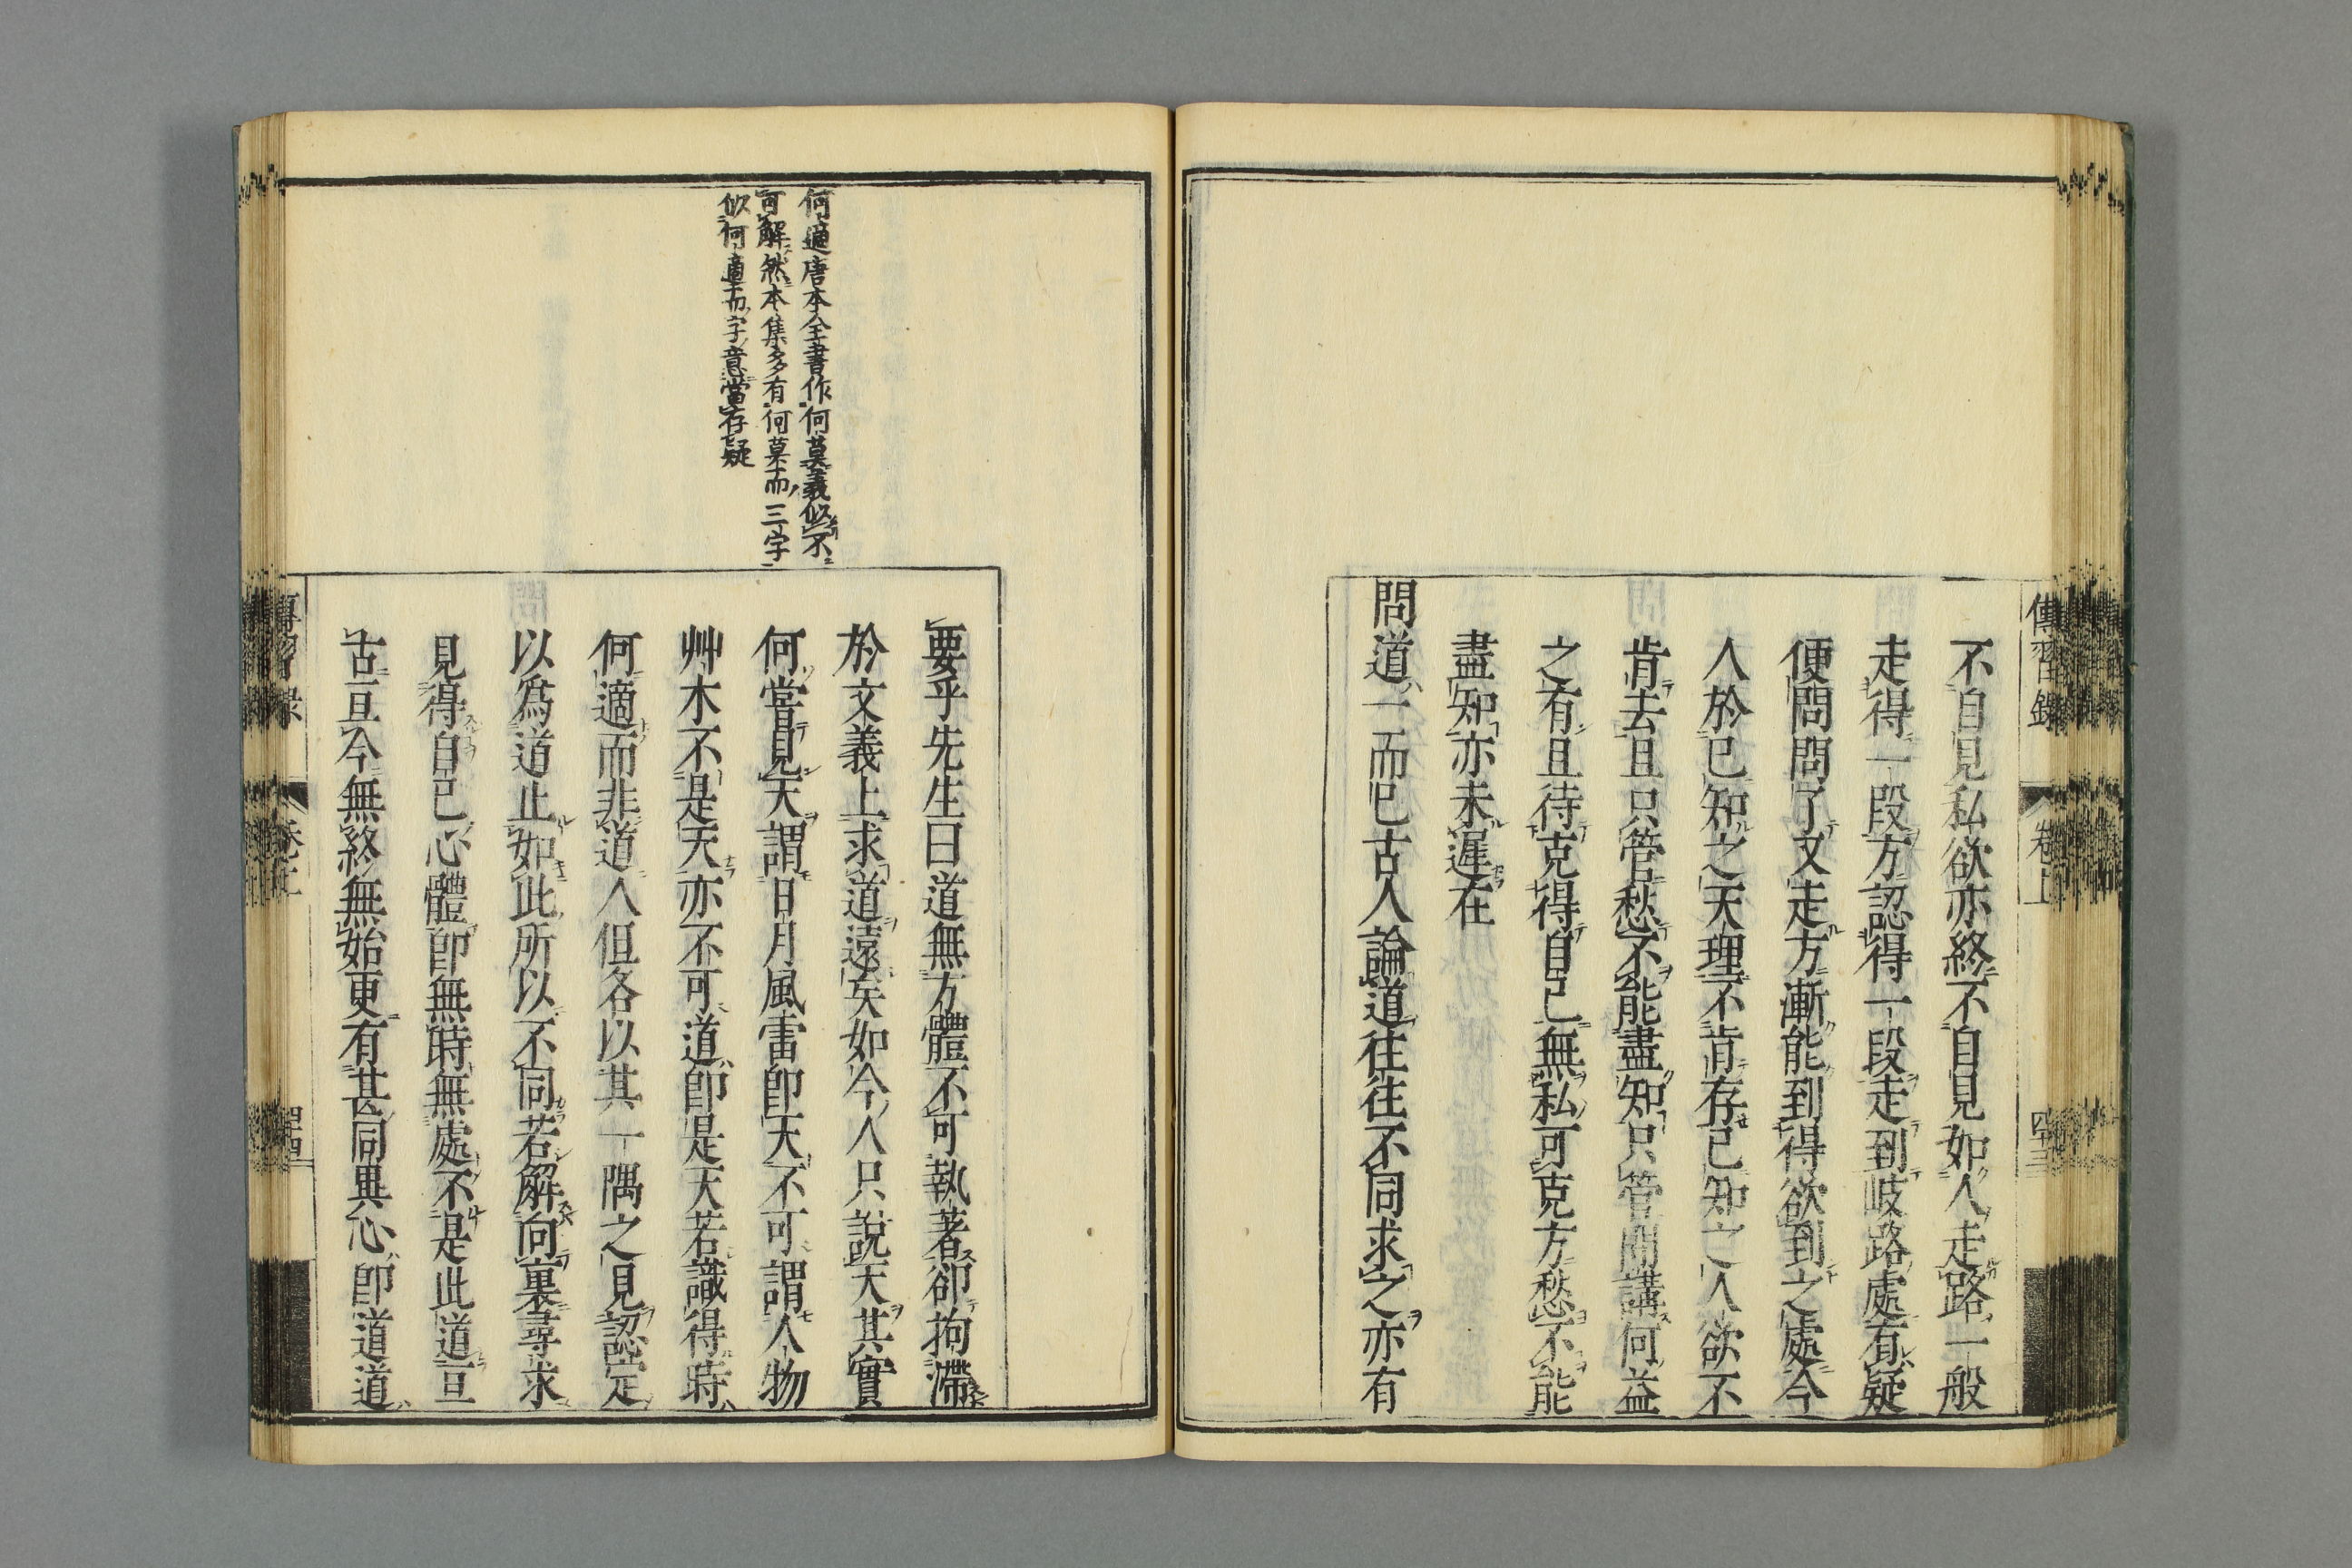 傳習錄
卷上
四十三
不自見私欲亦終不自見如人走路一般
走得一段方認得一段走到岐路處有疑
便問問了又走方漸能到得欲到之處今
人於已知之天理不肯存已知之人欲不
肯去且只管愁不能盡知只管閒講何益
之有且待克得自己無私可克方愁不能
盡知亦未遲在
問道一而已古人論道往往不同求之亦有
何適唐本全書作何莫義似不
可解然本集多有何莫而三字
似何適而字意當存疑
要乎先生曰道無方體不可執著卻拘滯
於文義上求道遠矣如今人只說天其實
何嘗見天謂日月風雷卽天不可謂人物
艸木不是天亦不可道卽是天若識得時
何適而非道人但各以其一隅之見認定
以爲道止如此所以不同若解向裏尋求
見得自己心體卽無時無處不是此道亘
古亘今無終無始更有甚同異心卽道道
傳習錄
卷上
四十四